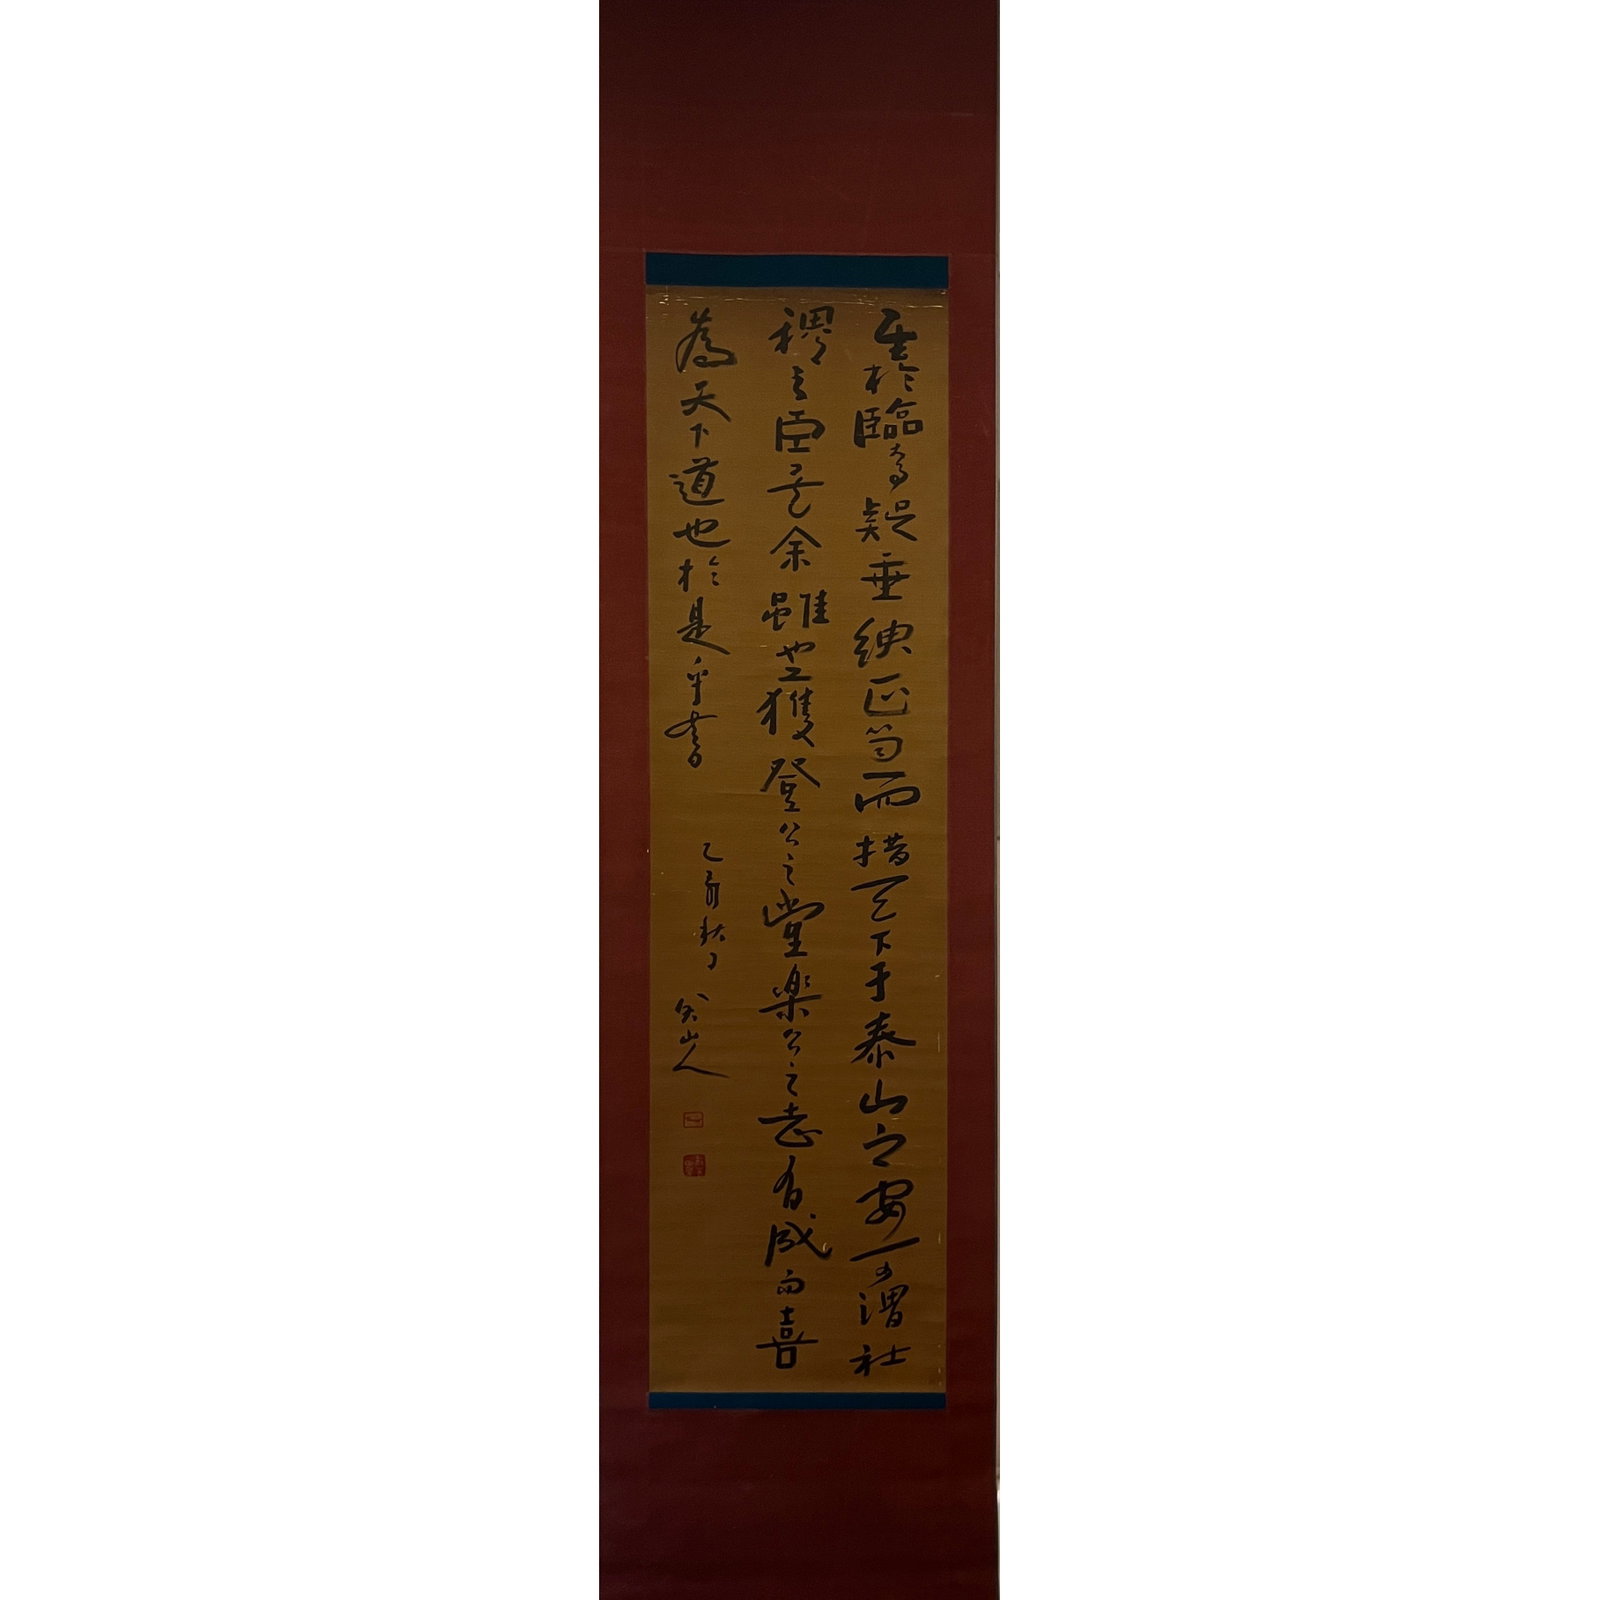 至於臨疑垂紳正笏而措天下于泰山之安可謂社
稷之臣矣余雖獲登公之堂楽公之志有成而喜
為天下道也於是乎書
乙亥秋日
八大山人